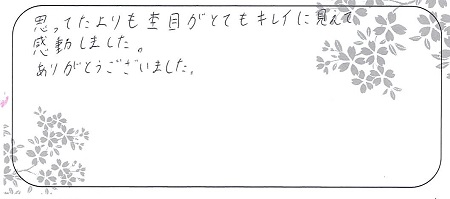 思ってたよりも杢目がとてもキレイに見えて
感動しました。
ありがとうございました。